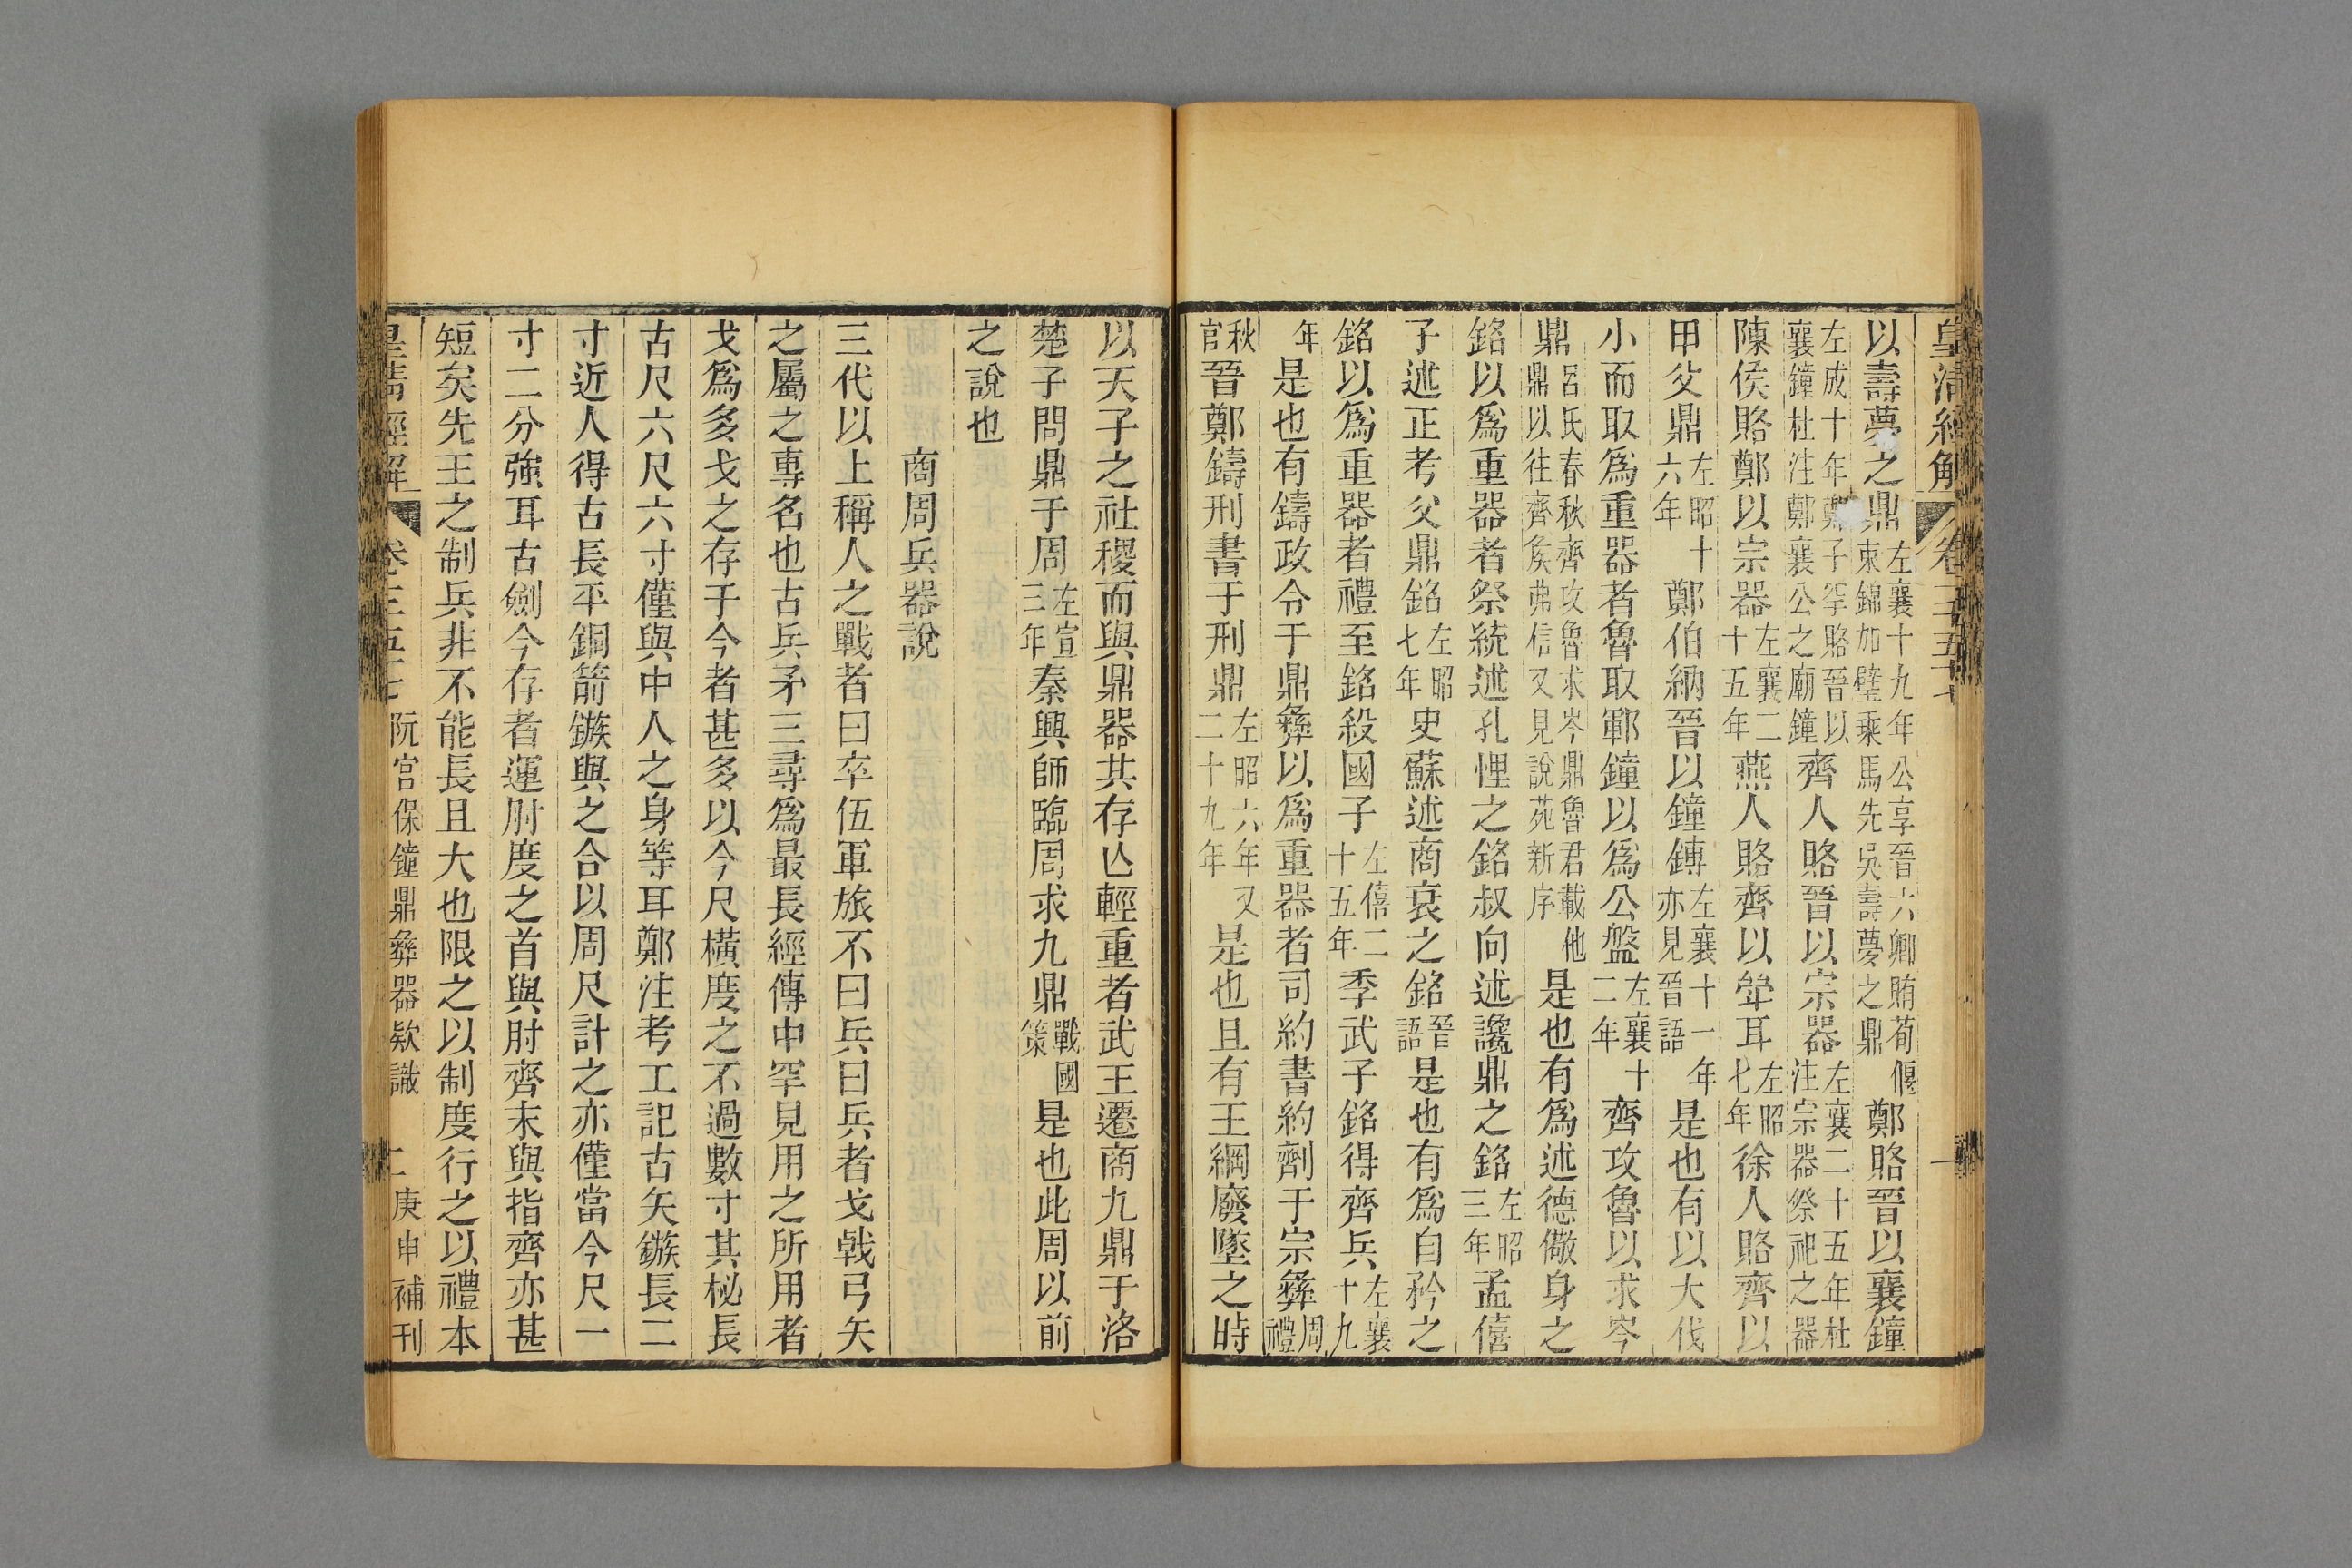 皇清經解 卷 一
以壽夢之鼎左襄十九年公享晉六卿賄荀偃束錦加璧乘馬先吳壽夢之鼎鄭賂晉以襄鐘
左成十年鄭子罕賂晉以襄鐘杜注鄭襄公之廟鐘齊人賂晉以宗器左襄二十五年杜注宗器祭祀之器
陳侯賂鄭以宗器左襄二十五年燕人賂齊以斝耳左昭七年徐人賂齊以
甲父鼎左昭十六年鄭伯納晉以鐘鎛左襄十一年亦見晉語是也有以大伐
小而取爲重器者魯取鄆鐘以爲公盤左襄十二年齊攻魯以求岑
鼎呂氏春秋齊攻魯求岑鼎魯君載他鼎以往齊矦弗信又見說苑新序是也有爲述德儆身之
銘以爲重器者祭統述孔悝之銘叔向述讒鼎之銘左昭三年孟僖
子述正考父鼎銘左昭七年史蘇述商衰之銘晉語是也有爲自矜之
銘以爲重器者禮至銘殺國子左僖二十五年季武子銘得齊兵左襄十九
年是也有鑄政令于鼎彝以爲重器者司約書約劑于宗彝周禮
秋官晉鄭鑄刑書于刑鼎左昭六年又二十九年是也且有王綱廢墜之時
以天子之社稷而與鼎器共存亾輕重者武王遷商九鼎于洛
楚子問鼎于周左宣三年秦興師臨周求九鼎戰國策是也此周以前
之說也
商周兵器說
三代以上稱人之戰者曰卒伍軍旅不曰兵曰兵者戈戟弓矢
之屬之專名也古兵矛三尋爲最長經傳中罕見用之所用者
戈爲多戈之存于今者甚多以今尺橫度之不過數寸其柲長
古尺六尺六寸僅與中人之身等耳鄭注考工記古矢鏃長二
寸近人得古長平銅箭鏃與之合以周尺計之亦僅當今尺一
寸二分強耳古劍今存者運肘度之首與肘齊末與指齊亦甚
短矣先王之制兵非不能長且大也限之以制度行之以禮本
皇清經解 卷 阮宮保鐘鼎彝器欵識 二 庚申補刊